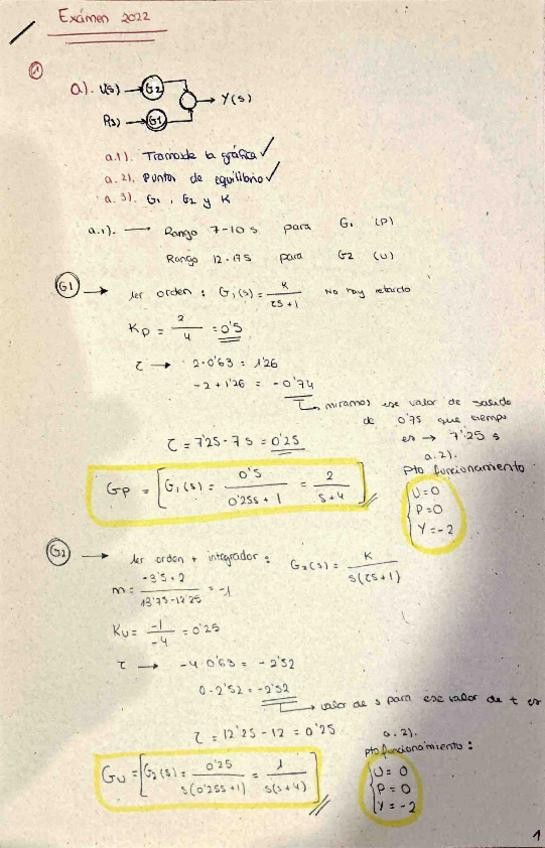 Exámen 2022
1
a). U(s) → G2 → Y(s)
P(s) → G1
a.1). Tramos de la gráfica ✓
a.2). Puntos de equilibrio ✓
a.3). G1, G2 y K
a.1). → Rango 7-10 s para G1 (P)
Rango 12-17s para G2 (U)
G1 → 1er orden : G1(s) = K / τs+1 No hay retardo
Kp = 2/4 = 0'5
τ → 2·0'63 = 1'26
-2+1'26 = -0'74
miramos ese valor de salida
de 0'75 que tiempo
es → 7'25 s
τ = 7'25 - 7 s = 0'25
a.2).
Pto funcionamiento
Gp = [G1(s) = 0'5 / 0'25s+1 = 2 / s+4]
U=0
P=0
Y=-2
G2 → 1er orden + integrador : G2(s) = K / s(τs+1)
m = -3'5+2 / 13'75-12'25 = -1
Ku = -1/-4 = 0'25
τ → -4·0'63 = -2'52
0-2'52 = -2'52
valor de s para ese valor de t es
τ = 12'25 - 12 = 0'25
a.2).
pto funcionamiento :
Gu = [G2(s) = 0'25 / s(0'25s+1) = 1 / s(s+4)]
U = 0
P = 0
Y = -2
1